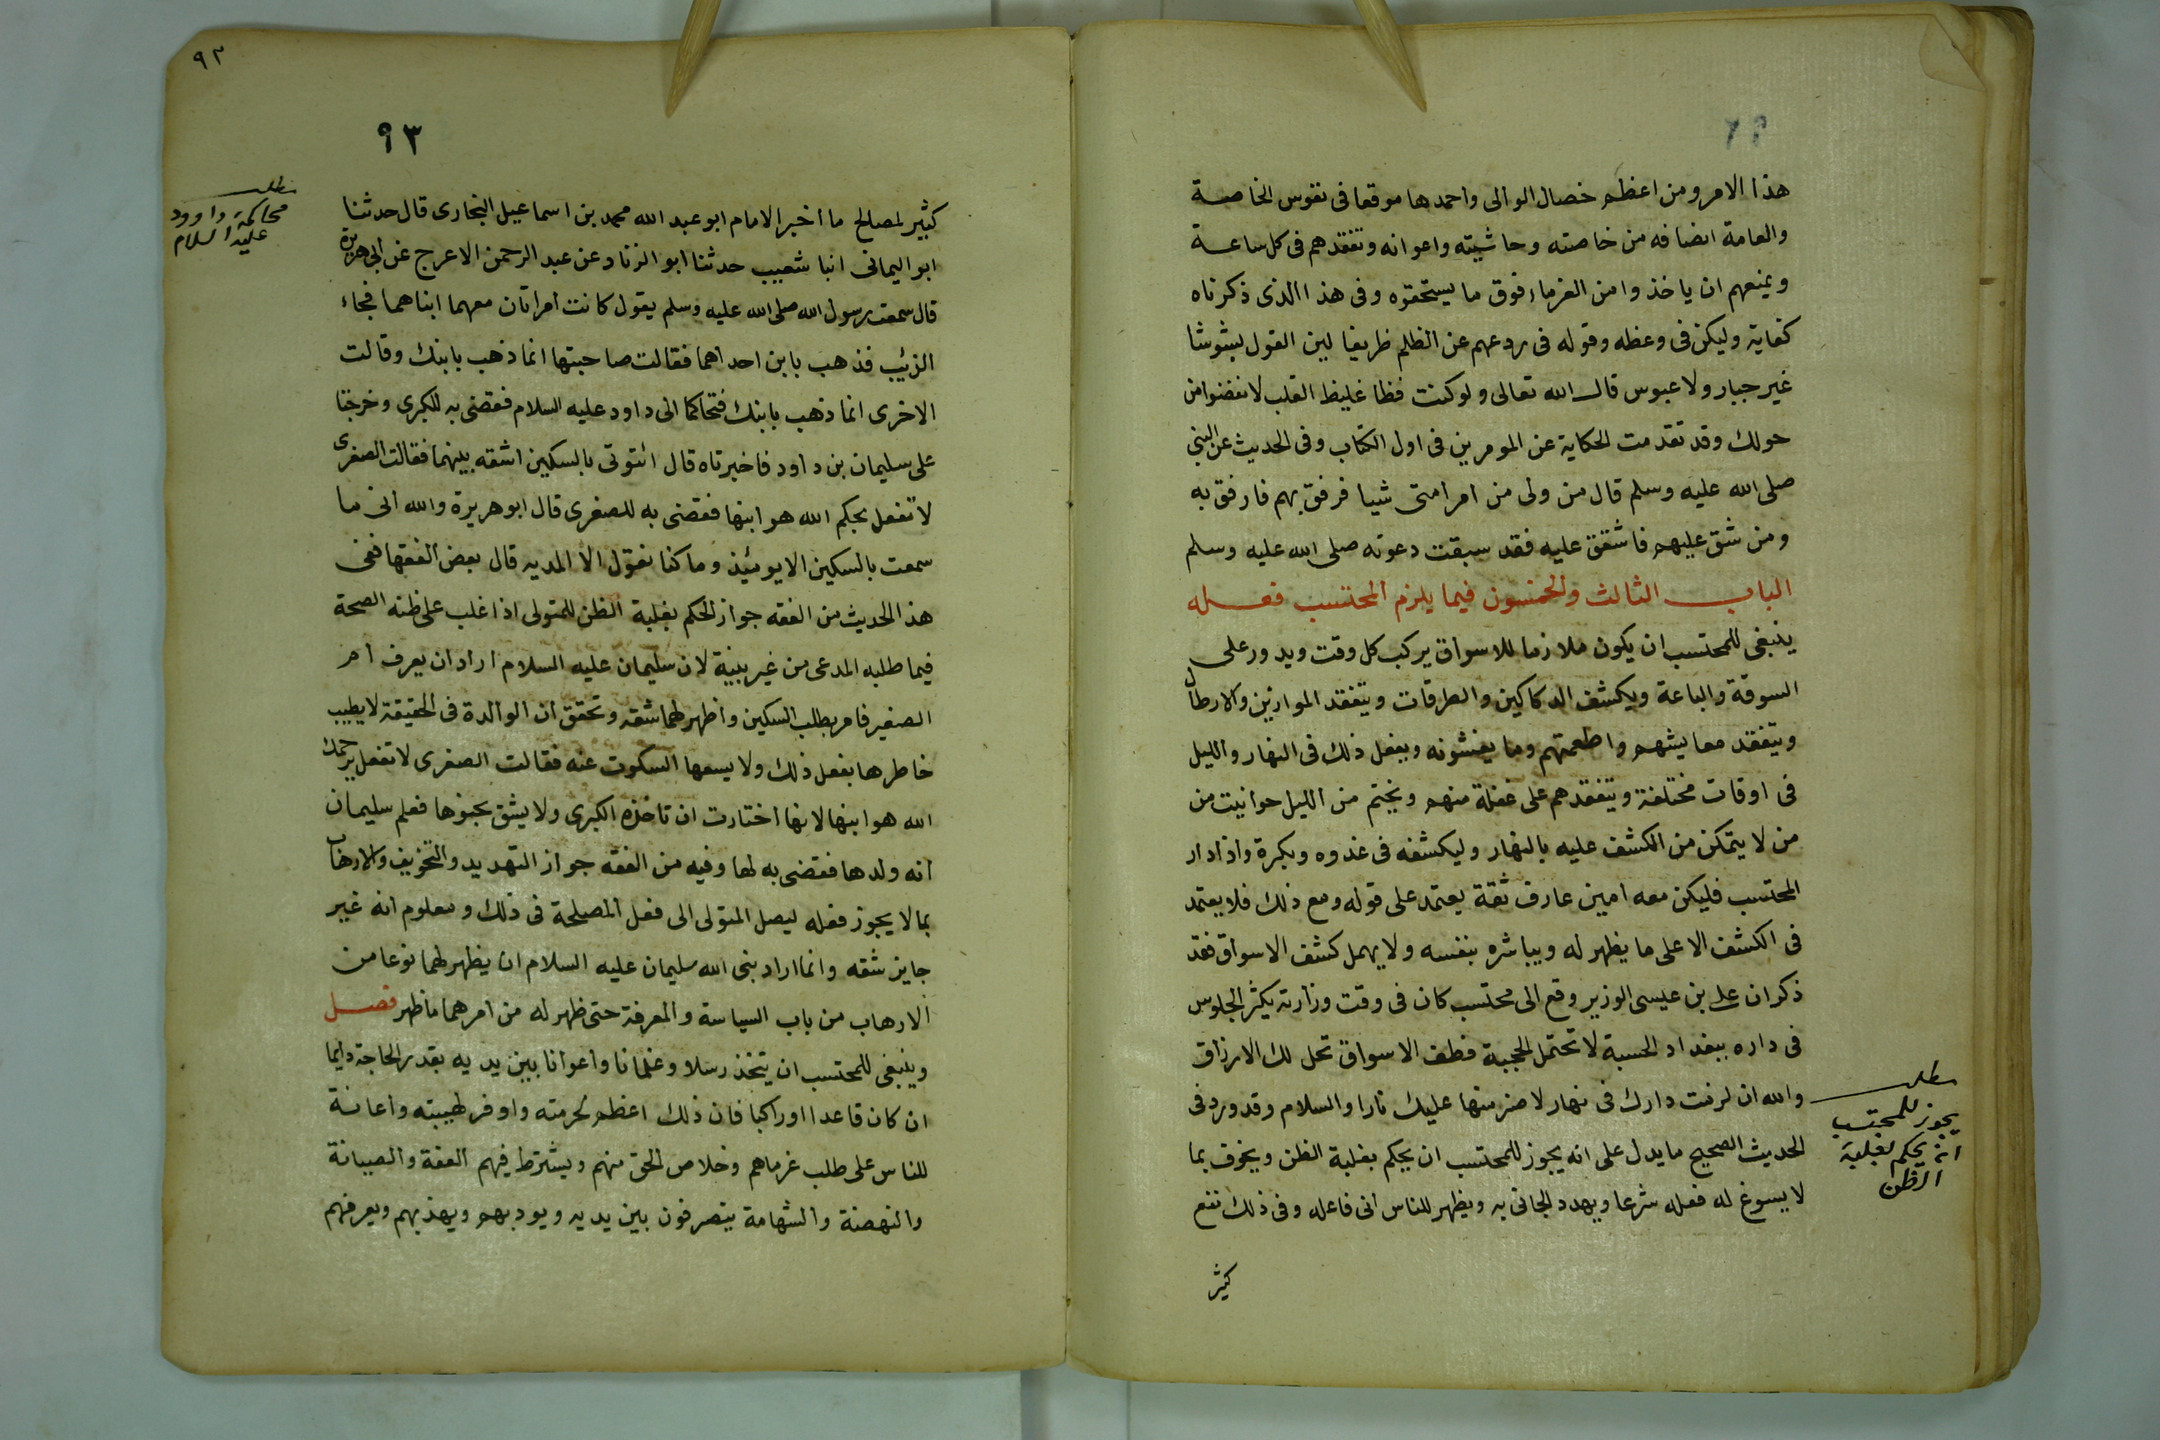 هذا الامر ومن اعظم خصال الوالى واحمدها موقعا فى نفوس الخاصة
والعامة انصافه من خاصته وحاشيته واعوانه وتفقدهم فى كل ساعة
ويمنعهم ان ياخذوا من الغرماء فوق ما يستحقوه وفى هذا الذى ذكرناه
كفاية وليكن فى وعظه وقوله فى ردعهم عن الظلم ظريفا لين القول بشوشا
غير جبار ولا عبوس قال الله تعالى ولو كنت فظا غليظ القلب لانفضوا من
حولك وقد تقدمت الحكاية عن المومرين فى اول الكتاب وفى الحديث عن النبى
صلى الله عليه وسلم قال من ولى من امر امتى شيا فرفق بهم فارفق به
ومن شق عليهم فاشقق عليه فقد سبقت دعوته صلى الله عليه وسلم
الباب الثالث والخمسون فيما يلزم المحتسب فعله
ينبغى للمحتسب ان يكون ملازما للاسواق يركب كل وقت ويدور على
السوقة والباعة ويكشف الدكاكين والطرقات ويتفقد الموازين والارطال
ويتفقد معايشهم واطعمتهم وما يغشونه ويفعل ذلك فى النهار والليل
فى اوقات مختلفة ويتفقدهم على غفلة منهم ويختم من الليل حوانيت من
من لا يتمكن من الكشف عليه بالنهار وليكشفه فى غدوه وبكرة واذا دار
المحتسب فليكن معه امين عارف ثقة يعتمد على قوله ومع ذلك فلا يعتمد
فى الكشف الا على ما يظهر له ويباشره بنفسه ولا يهمل كشف الاسواق فقد
ذكر ان على بن عيسى الوزير وقع الى محتسب كان فى وقت وزارته يكثر الجلوس
فى داره ببغداد الحسبة لا تحتمل الحجبة فطف الاسواق تحل لك الارزاق
والله ان لزمت دارك فى نهار لاضرمنها عليك نارا والسلام وقد ورد فى
الحديث الصحيح ما يدل على انه يجوز للمحتسب ان يحكم بغلبة الظن ويخوف بما
لا يسوغ له فعله شرعا ويهدد الجانى به ويظهر للناس انى فاعله وفى ذلك نفع
كثير
مطلب
يجوز للمحتسب
انه يحكم بغلبة
الظن
٩٣
٩٣
كثير لمصالح ما اخبر الامام ابو عبد الله محمد بن اسماعيل البخارى قال حدثنا
ابو اليمانى انبا شعيب حدثنا ابو الزناد عن عبد الرحمن الاعرج عن ابى هريرة
قال سمعت رسول الله صلى الله عليه وسلم يقول كانت امراتان معهما ابناهما فجاء
الذئب فذهب بابن احداهما فقالت صاحبتها انما ذهب بابنك وقالت
الاخرى انما ذهب بابنك فتحاكما الى داود عليه السلام فقضى به للكبرى وخرجتا
على سليمان بن داود فاخبرتاه قال ائتونى بالسكين اشقه بينهما فقالت الصغرى
لا تفعل يحكم الله هو ابنها فقضى به للصغرى قال ابو هريرة والله انى ما
سمعت بالسكين الا يومئيذ وما كنا نقول الا المديه قال بعض الفقها ففى
هذا الحديث من الفقه جواز الحكم بغلبة الظن للمتولى اذا غلب على ظنه الصحة
فيما طلبه المدعى من غير ببينة لان سليمان عليه السلام اراد ان يعرف امر
الصغير فامر بطلب السكين واظهر لهما شقه وتحقق ان الوالدة فى الحقيقة لا يطيب
خاطرها بفعل ذلك ولا يسعها السكوت عنه فقالت الصغرى لا تفعل يرحمك
الله هو ابنها لانها اختارت ان تاخذه الكبرى ولا يشق بحبوها فعلم سليمان
انه ولدها فقضى به لها وفيه من الفقه جواز التهديد والتخويف والارهاب
بما لا يجوز فعله ليصل المتولى الى فعل المصلحة فى ذلك ومعلوم انه غير
جايز شقه وانما اراد بنى الله سليمان عليه السلام ان يظهر لهما نوعا من
الارهاب من باب السياسة والمعرفة حتى ظهر له من امرهما ما ظهر فصل
وينبغى للمحتسب ان يتخذ رسلا وغلمانا واعوانا بين يديه بقدر الحاجة دايما
ان كان قاعدا او راكبا فان ذلك اعظم لحرمته واوفر لهيبته واعانة
للناس على طلب غرماهم وخلاص الحق منهم ويشترط فيهم العفة والصيانة
والنهضة والشهامة يتصرفون بين يديه ويودبهم ويهذبهم ويعرفهم
مطلب
محاكمة داوود
عليه السلام